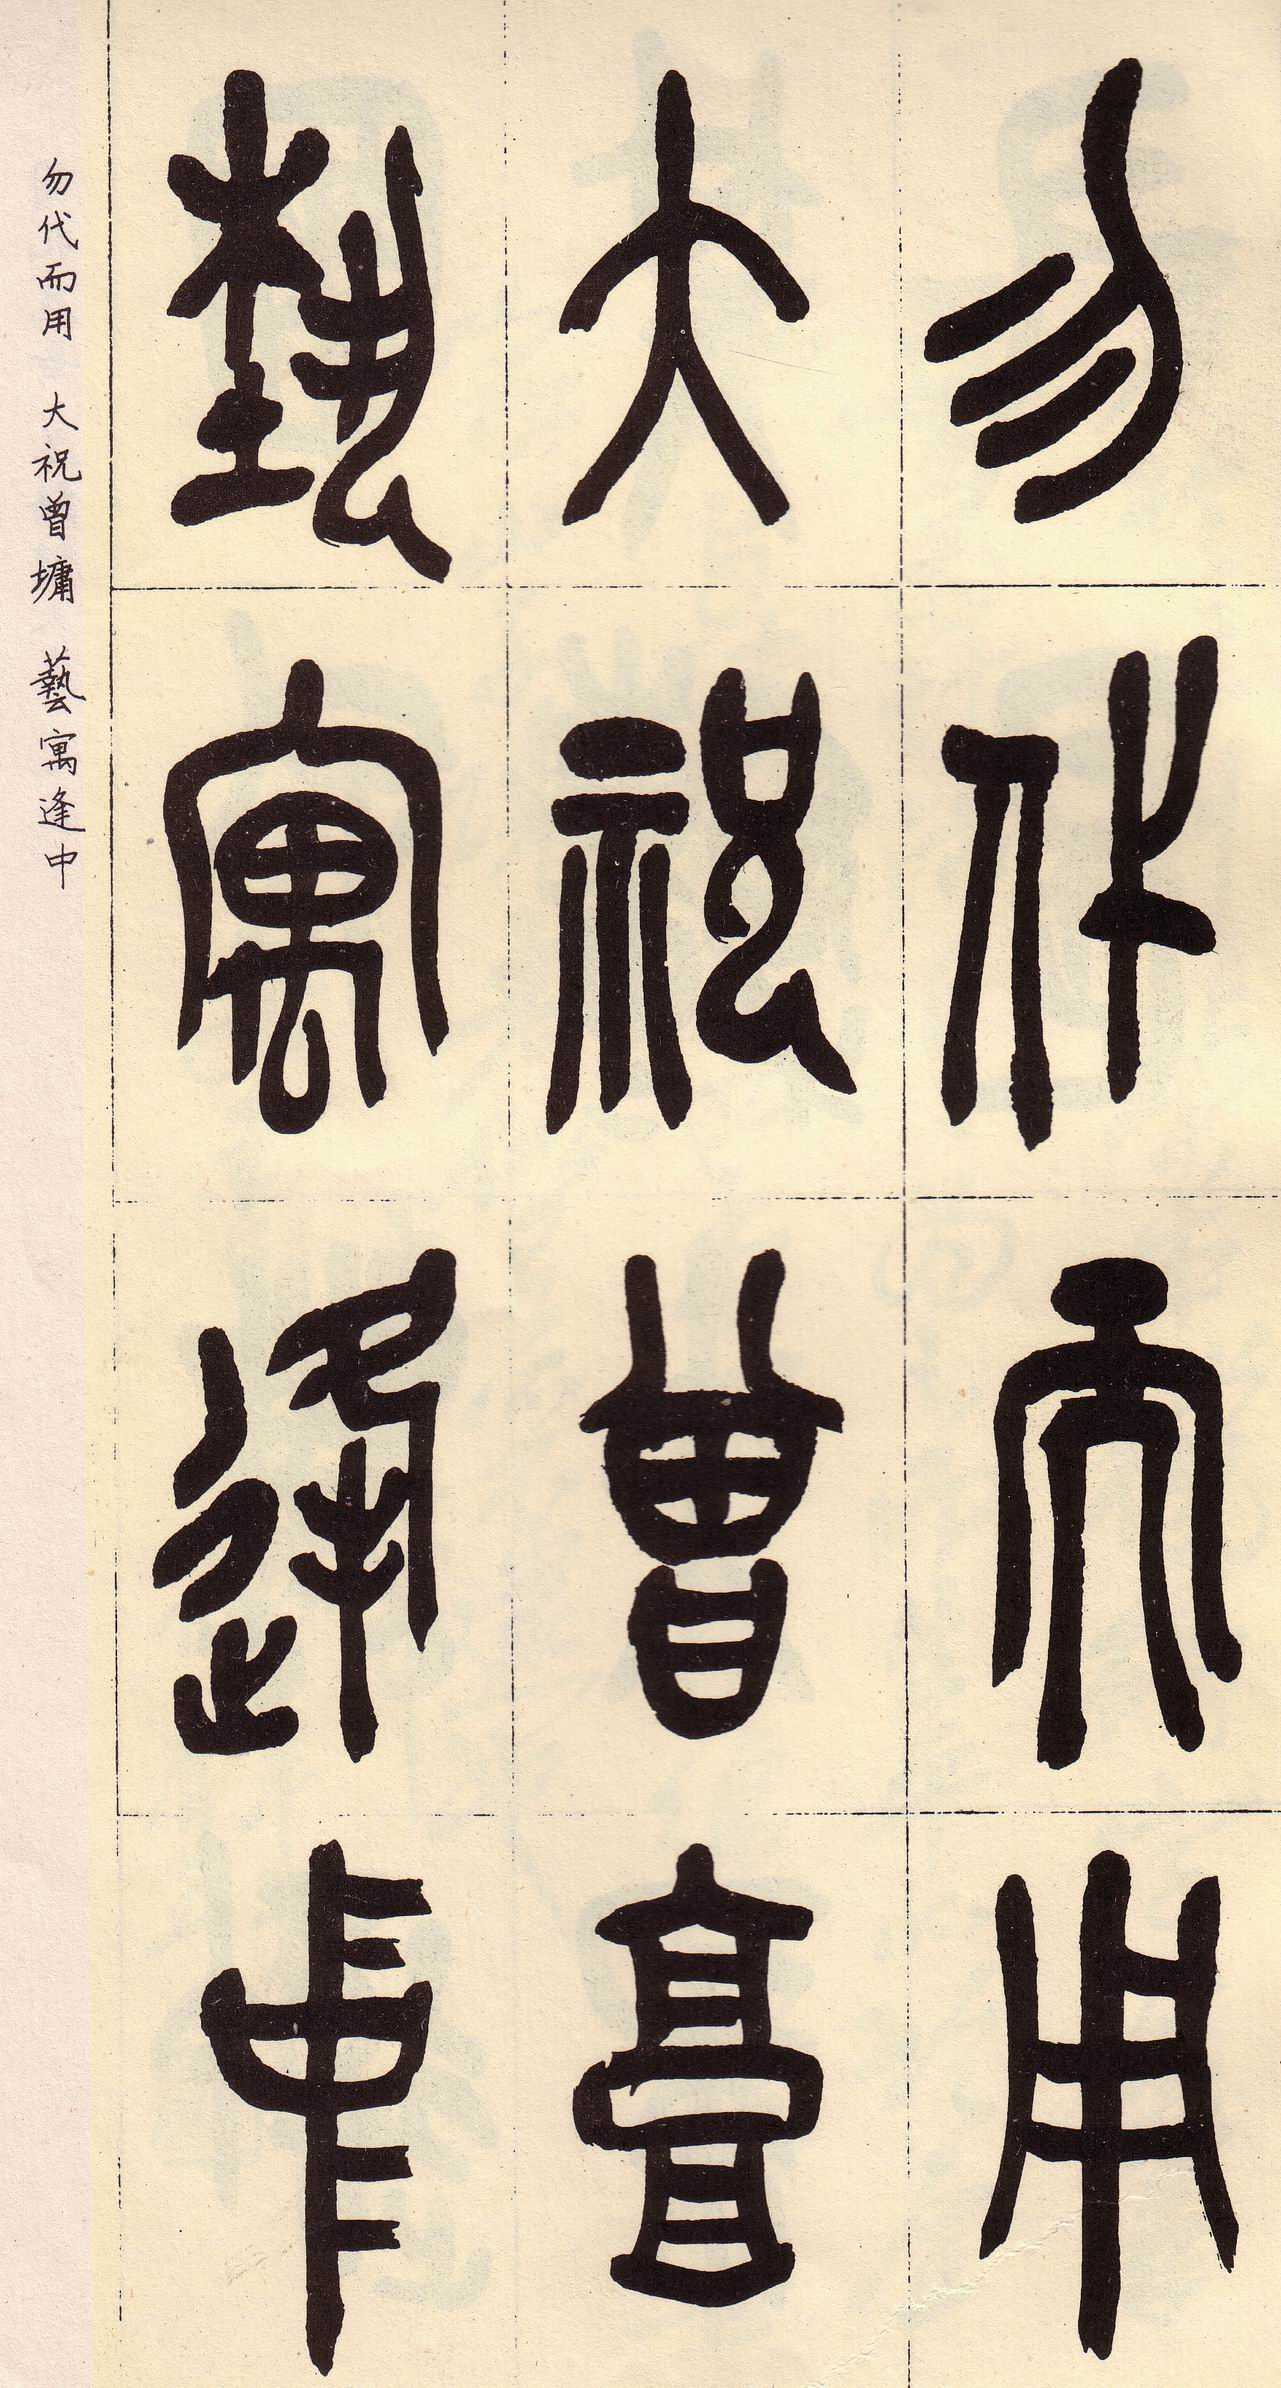 勿代而用
大祝曾墉
藝寓逢中
勿代而用 大祝曾墉 藝寓逢中